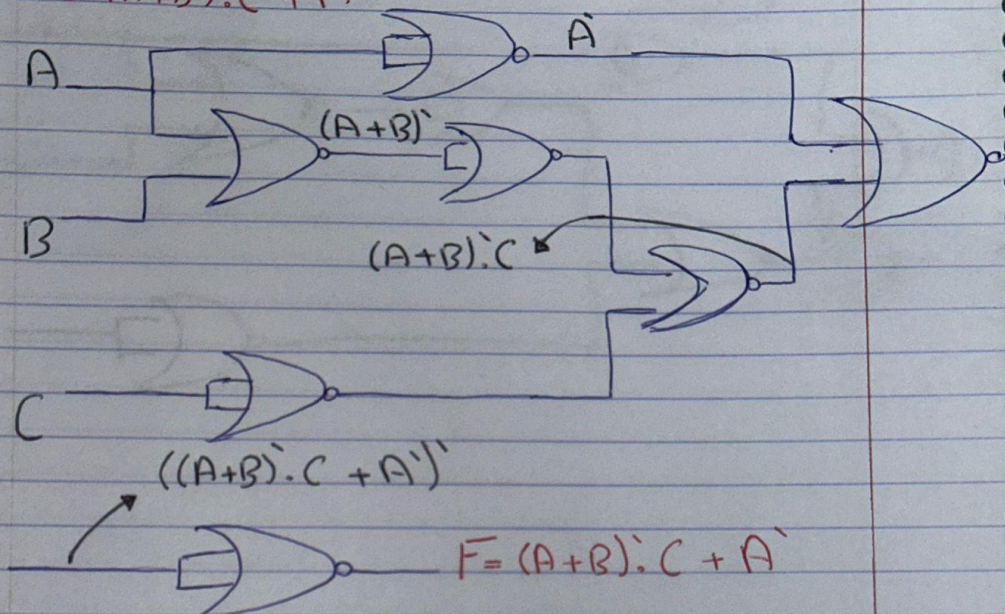 A
A`
(A+B)`
B
(A+B)`.C
C
((A+B)`.C + A`)`
F= (A+B)`.C + A`